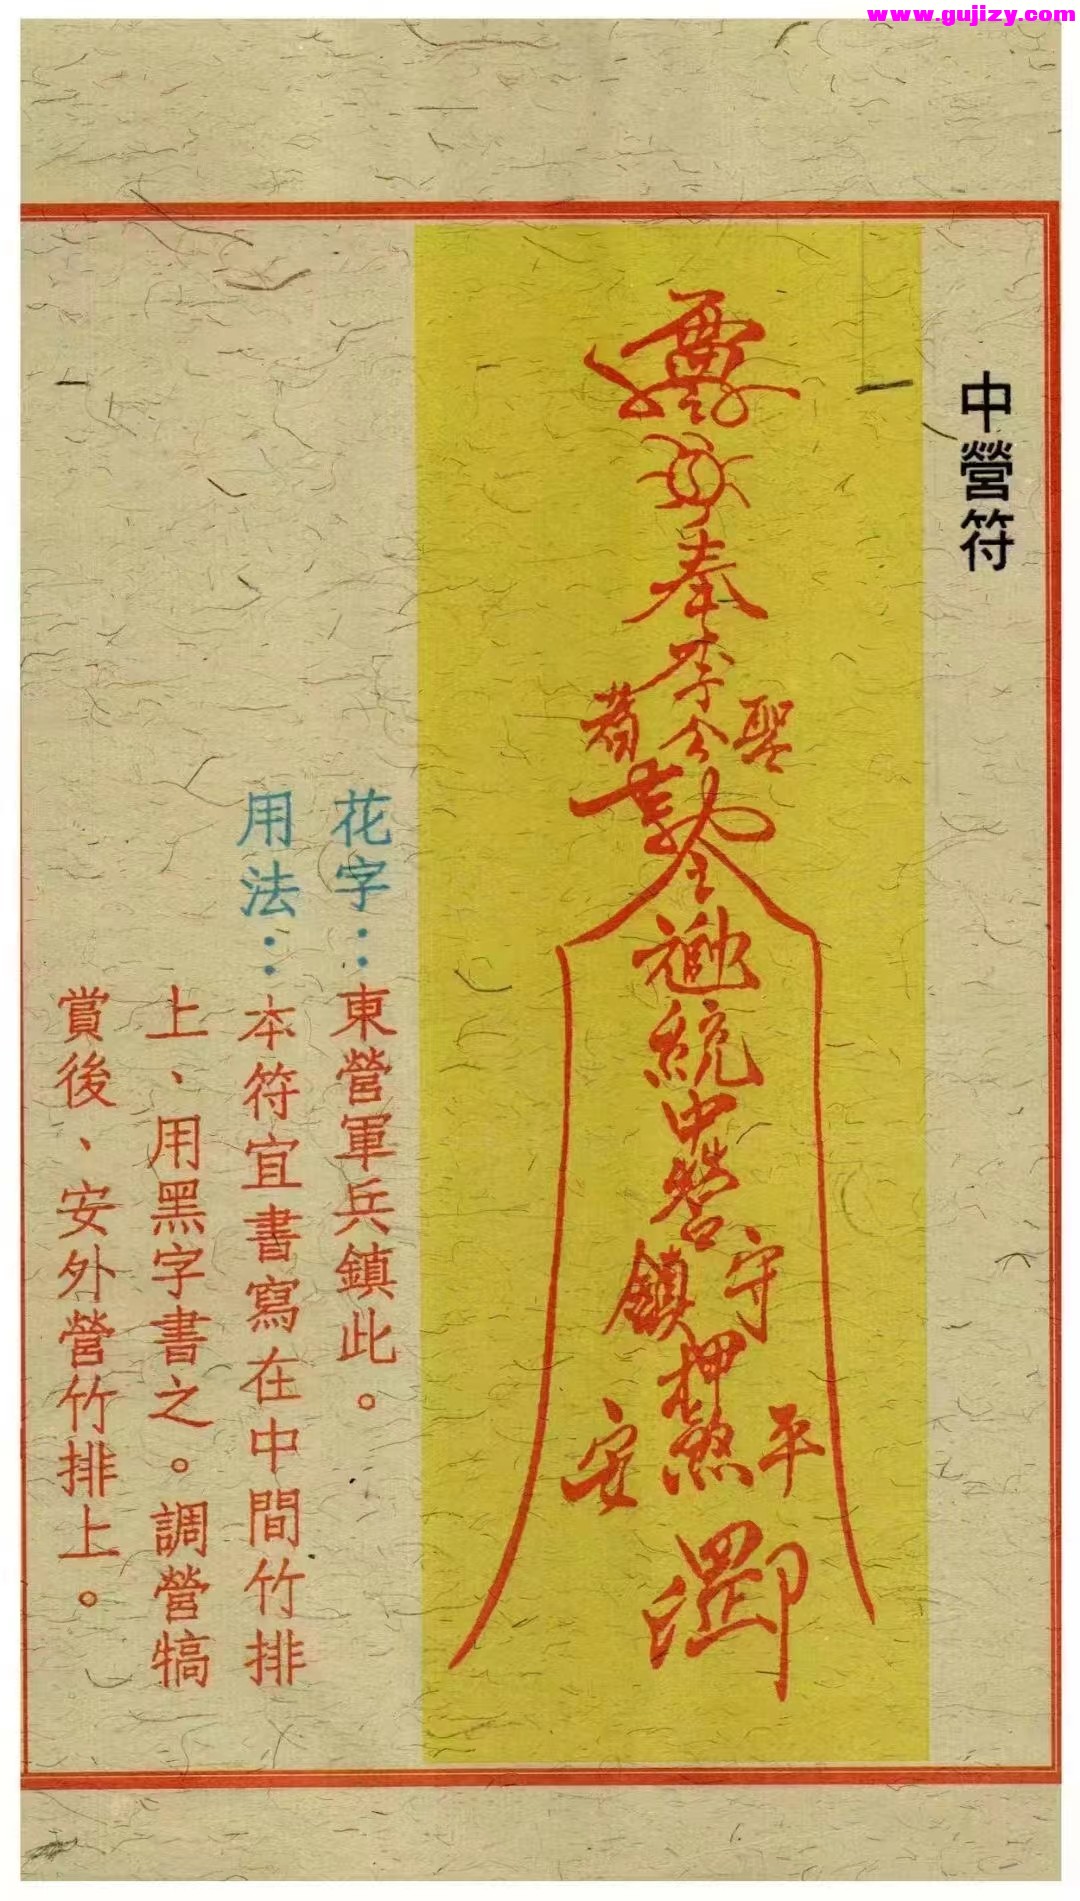 www.gujizy.com
中營符
奉李
聖者
統中營
鎮守
押煞
平安
花字：東營軍兵鎮此。
用法：本符宜書寫在中間竹排
上、用黑字書之。調營犒
賞後、安外營竹排上。